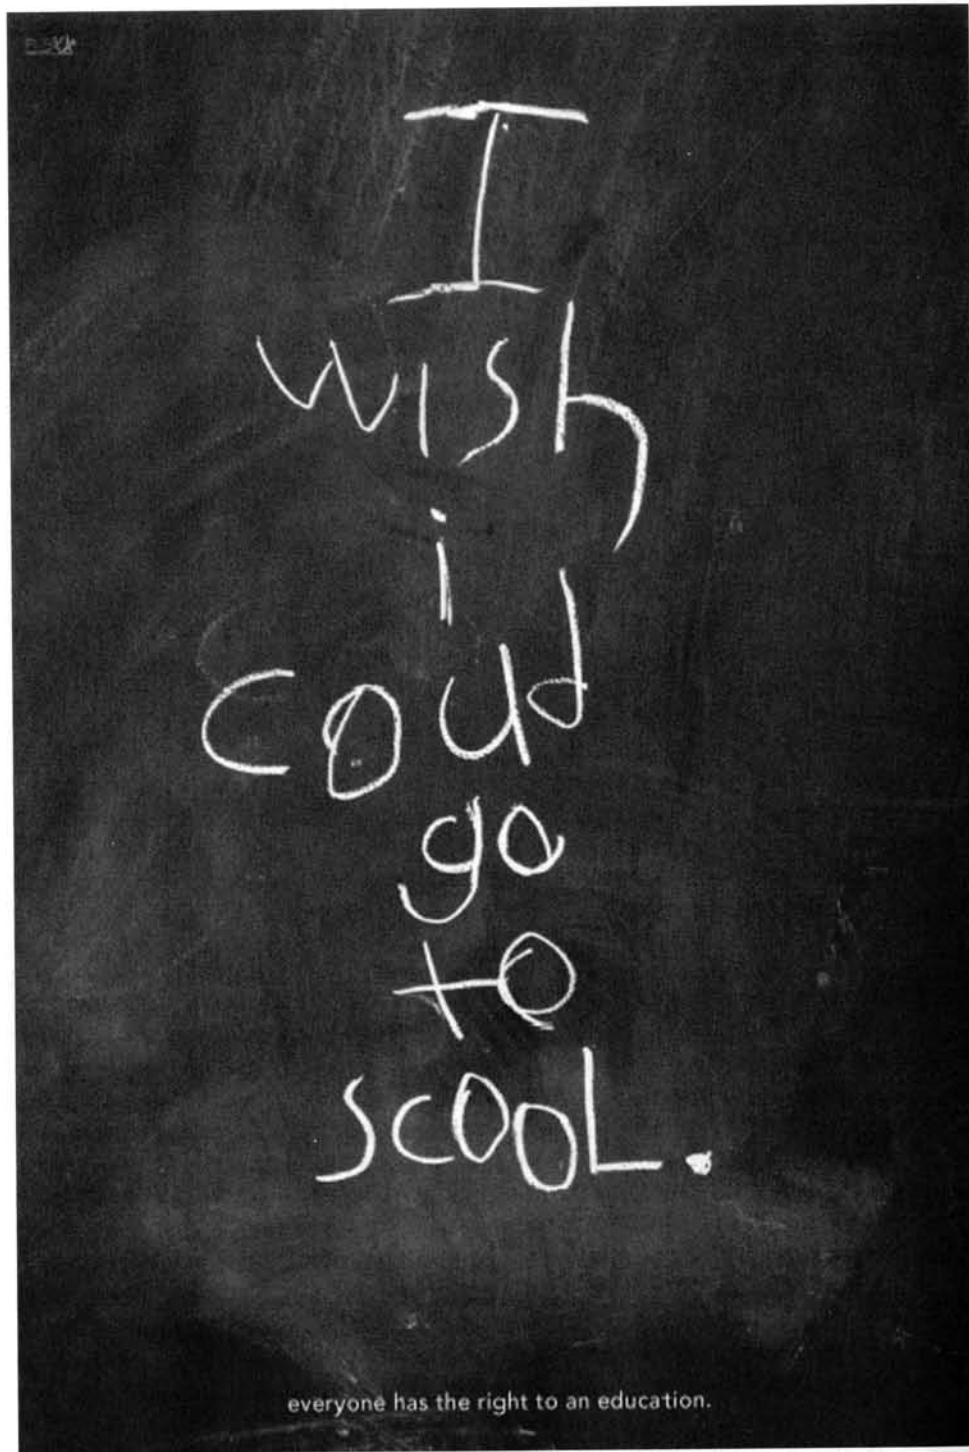 I
wish
i
coud
go
to
scooL.
everyone has the right to an education.